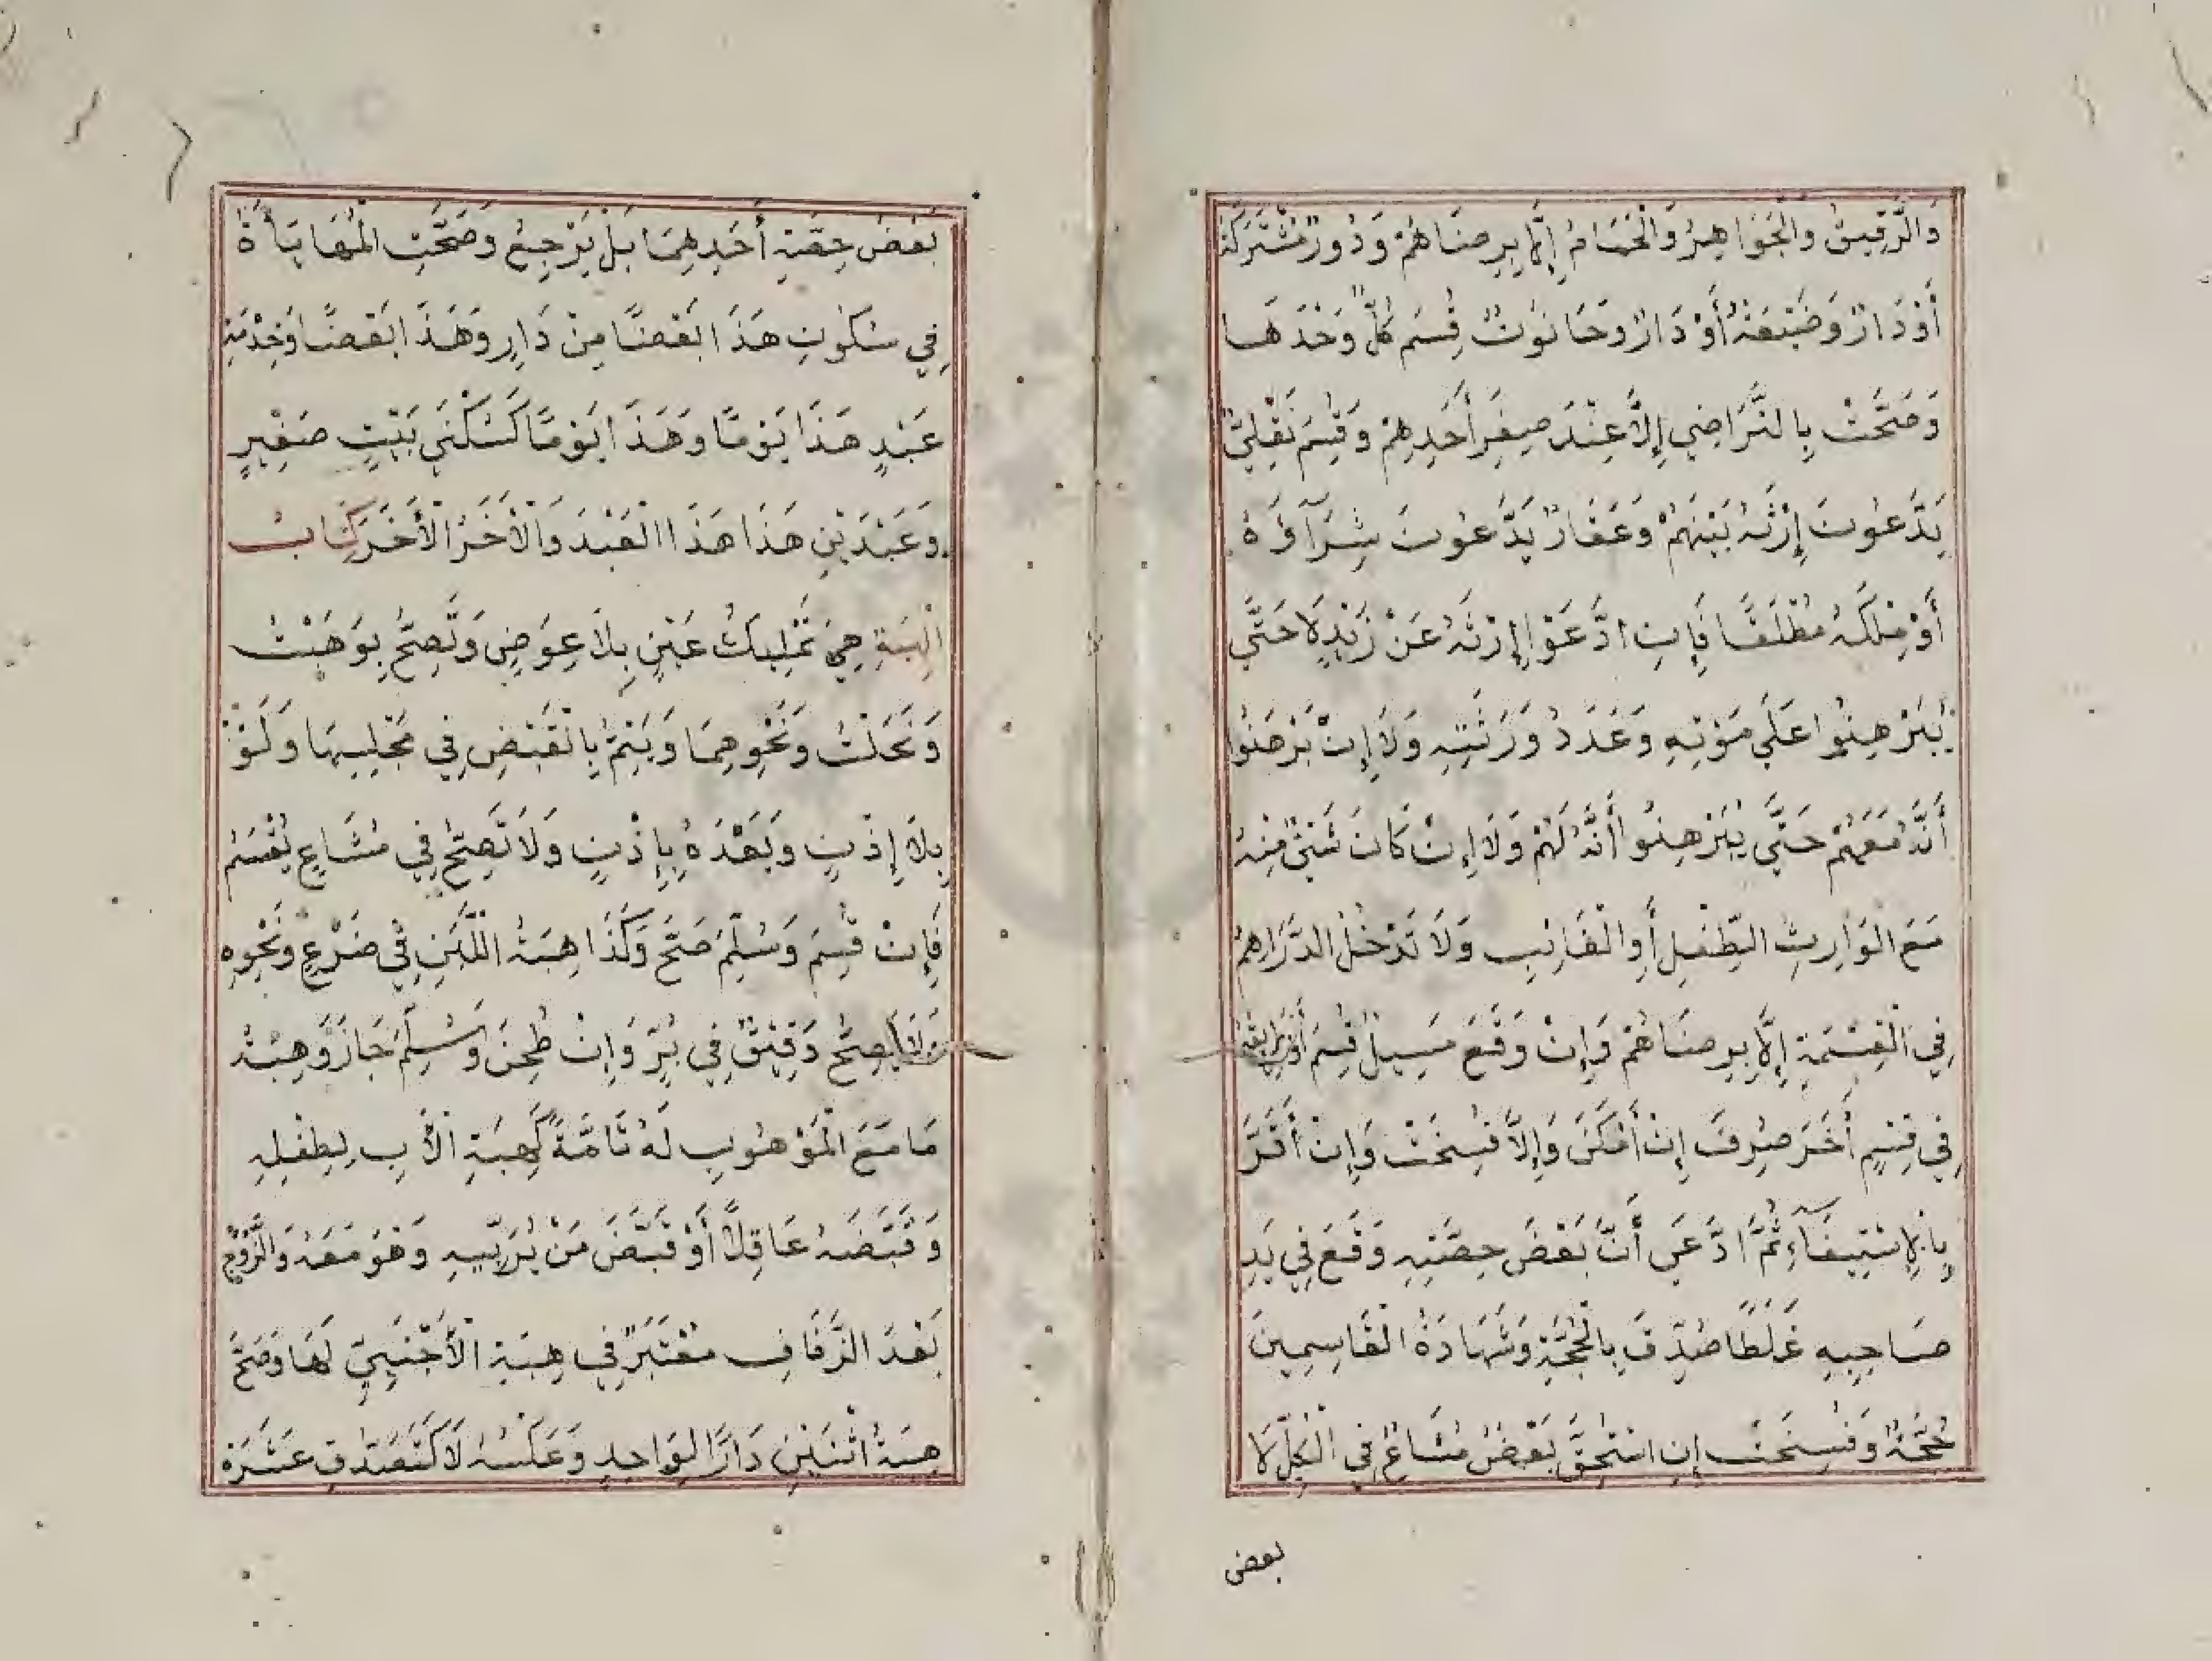 وَالرَّقِيقُ وَالْجَوَاهِرُ وَالْحَمَامُ إِلَّا بِرِضَاهُمْ وَدُورٌ مُشْتَرَكَةٌ
أَوْ دَارٌ وَضَيْعَةٌ أَوْ دَارٌ وَحَانُوتٌ قُسِمَ كُلٌّ وَحْدَهَا
وَصَحَّتْ بِالتَّرَاضِي إِلَّا عِنْدَ صِغَرِ أَحَدِهِمْ وَقُسِمَ نَقْلِيٌّ
يَدَّعُونَ إِرْثَهُ بَيْنَهُمْ وَعَقَارٌ يَدَّعُونَ شِرَآؤَهُ
أَوْ مِلْكَهُ مُطْلَقًا فَإِنِ ادَّعَوْا إِرْثَهُ عَنْ زَيْدٍ لَا حَتَّى
يُبَرْهِنُوا عَلَى مَوْتِهِ وَعَدَدُ وَرَثَتِهِ وَلَا إِنْ بَرْهَنُوا
أَنَّهُ مَعَهُمْ حَتَّى يُبَرْهِنُوا أَنَّهُ لَهُمْ وَلَا إِنْ كَانَ شَيْئٌ مِنْهُ
مَعَ الْوَارِثِ الطِّفْلِ أَوِ الْغَائِبِ وَلَا تَدْخُلُ الدَّرَاهِمُ
فِي الْقِسْمَةِ إِلَّا بِرِضَاهُمْ وَإِنْ وَقَعَ مَسِيلُ قُسِمَ أَوْ طَرِيقُهُ
فِي قِسْمٍ أَخَرَ صُرِفَ إِنْ أَمْكَنَ وَإِلَّا فُسِخَتْ وَإِنْ أَقَرَّ
بِالْإِسْتِيفَآءِ ثُمَّ ادَّعَى أَنَّ بَعْضَ حِصَّتِهِ وَقَعَ فِي يَدِ
صَاحِبِهِ غَلَطًا صُدِّقَ بِالْحُجَّةِ وَشَهَادَةُ الْقَاسِمِينَ
حُجَّةٌ وَفُسِخَتْ إِنِ اسْتُحِقَّ بَعْضُ مُشَاعٌ فِي الْكُلِّ لَا
بعض
بَعْضُ حِصَّةِ أَحَدِهِمَا بَلْ يَرْجِعُ وَصَحَّتِ الْمُهَايَأَةُ
فِي سُكُونِ هَذَا بَعْضًا مِنْ دَارٍ وَهَذَا بَعْضًا وَخِدْمَةِ
عَبْدٍ هَذَا يَوْمًا وَهَذَا يَوْمًا كَسُكْنَى بَيْتٍ صَغِيرٍ
وَعَبْدَيْنِ هَذَا هَذَا الْعَبْدَ وَالْأَخَرُ الْأَخَرَ كِتَابُ
الْهِبَةِ هِيَ تَمْلِيكُ عَيْنٍ بِلَا عِوَضٍ وَتَصِحُّ بِوَهَبْتُ
وَنَحَلْتُ وَنَحْوِهِمَا وَيَتِمُّ بِالْقَبْضِ فِي مَجْلِسِهَا وَلَوْ
بِلَا إِذْنٍ وَبَعْدَهُ بِإِذْنٍ وَلَا تَصِحُّ فِي مُشَاعٍ يُقْسَمُ
فَإِنْ قُسِمَ وَسُلِّمَ صَحَّ وَكَذَا هِبَةُ اللَّبَنِ فِي ضَرْعٍ وَنَحْوِهِ
وَلَا يَصِحُّ دَقِيقٌ فِي بُرٍّ وَإِنْ طُحِنَ وَسُلِّمَ جَازَ وَهِبَةُ
مَا مَعَ الْمَوْهُوبِ لَهُ تَامَّةً كَهِبَةِ الْأَبِ لِطِفْلِهِ
وَقَبْضَهُ عَاقِلًا أَوْ قَبْضَ مَنْ يُرَبِّيهِ وَهُوَ مَعَهُ وَالزَّوْجِ
بَعْدَ الزَّفَافِ مُعْتَبَرٌ فِي هِبَةِ الْأَجْنَبِيِّ لَهَا وَصَحَّ
هِبَةُ اثْنَيْنِ دَارًا لِوَاحِدٍ وَعَكْسُهُ لَا كَتَصَدُّقِ عَشَرَةٍ